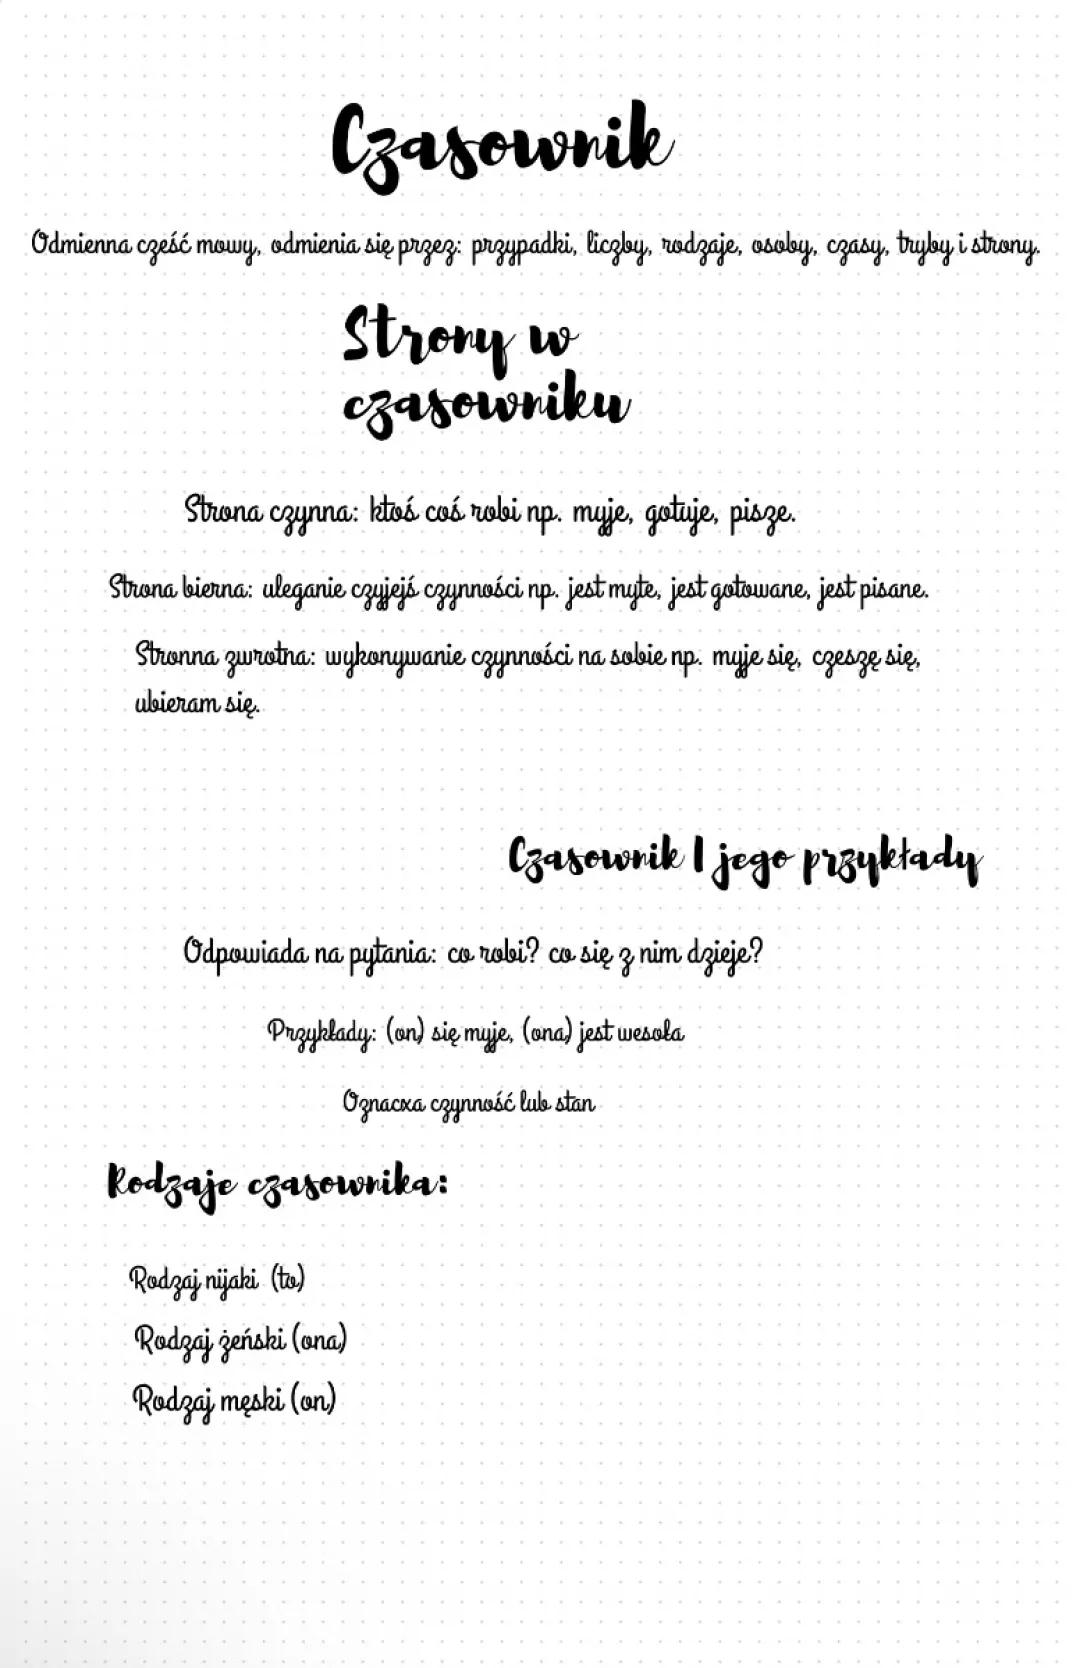 Czasownik
Odmienna cześć mowy, odmienia się przez: przypadki, liczby, rodzaje, osoby, czasy, tryby i strony.
Strony w
czasowniku
Strona czynna: ktoś coś robi np. myje, gotuje, pisze.
Strona bierna: uleganie czyjejś czynności np. jest myte, jest gotowane, jest pisane.
Stronna zwrotna: wykonywanie czynności na sobie np. myje się, czeszę się,
ubieram się.
Czasownik I jego przykłady
Odpowiada na pytania: co robi? co się z nim dzieje?
Przykłady: (on) się myje, (ona) jest wesoła
Oznacxa czynność lub stan
Rodzaje czasownika:
Rodzaj nijaki (to)
Rodzaj żeński (ona)
Rodzaj męski (on)